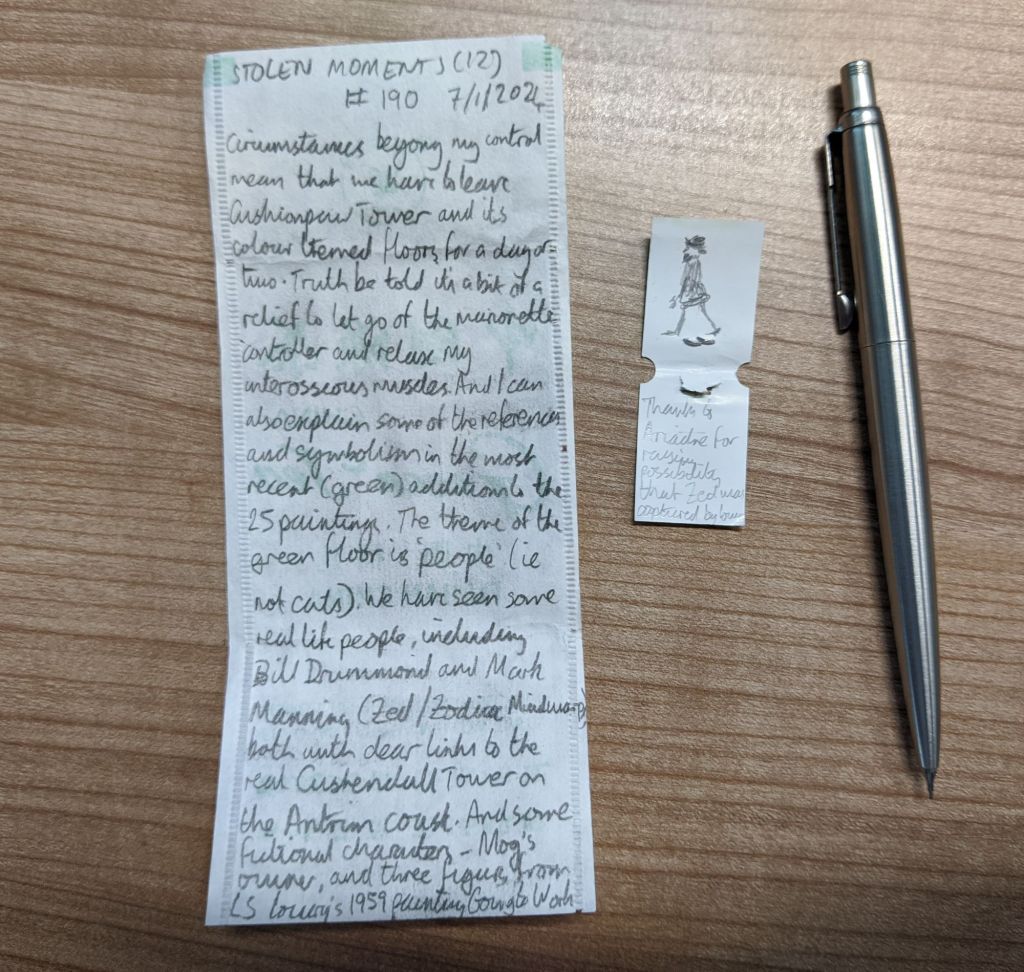 STOLEN MOMENTS (12)
# 190 7/1/2024
Circumstances beyong my control
mean that we have to leave
Cushionpaw Tower and its
colour themed floors for a day or
two. Truth be told it's a bit of a
relief to let go of the marionette
controller and relax my
interosseous muscles. And I can
also explain some of the references
and symbolism in the most
recent (green) addition to the
25 paintings. The theme of the
green floor is 'people' (ie
not cats). We have seen some
real life people, including
Bill Drummond and Mark
Manning (Zed/Zodiac Mindwarp)
both with clear links to the
real Cushendall Tower on
the Antrim coast. And some
fictional characters - Mog's
owner, and three figures from
LS Lowry's 1959 painting Going to Work
Thanks to
Ariadne for
raising
possibility
that Zed was
captured by